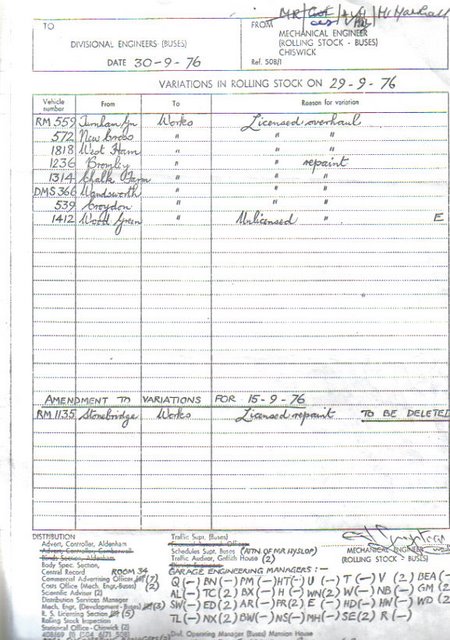 MR
H. Marshall
TO
FROM
MECHANICAL ENGINEER
DIVISIONAL ENGINEERS (BUSES)
(ROLLING STOCK - BUSES)
CHISWICK
DATE 30-9-76
Ref. 508/1
VARIATIONS IN ROLLING STOCK ON 29-9-76
Vehicle number From To Reason for variation
RM 559 Turnham Gn Works Licensed overhaul
572 New Cross " " "
1818 West Ham " " "
1236 Bromley " " repaint
1314 Chalk Farm " " "
DMS 366 Wandsworth " " "
539 Croydon " " "
1412 Wood Green " Unlicensed " E
AMENDMENT TO VARIATIONS FOR 15-9-76
RM 1135 Stonebridge Works Licensed repaint TO BE DELETED
DISTRIBUTION
Advert. Controller, Aldenham
Advert. Controller, Camberwell
Body Spec. Section,
Central Record ROOM 34
Commercial Advertising Officer (7)
Costs Office (Mech. Engr-Buses) (2)
Scientific Adviser (2)
Distribution Services Manager
Mech. Engr. (Development - Buses) (3)
R. S. Licensing Section (5)
Rolling Stock Inspection
Stational Office - Chiswick (2)
Traffic Supt. (Buses)
Schedules Supt. Buses (ATTN OF MR HYSLOP)
Traffic Auditor, Griffith House (2)
MECHANICAL ENGINEER
(ROLLING STOCK - BUSES)
GARAGE ENGINEERING MANAGERS :-
Q (-) BN (-) PM (-) HT (-) U (-) T (-) V (2) BEA (-)
AL (-) TC (2) BX (-) H (-) WN (2) W (-) NB (-) GM (2)
SW (-) ED (2) AR (-) FR (2) E (-) HD (-) HW (-) WD (2)
TL (-) NX (2) BW (-) NS (-) MH (-) SE (2) R (-)
Divl. Operating Manager (Buses) Mansion House